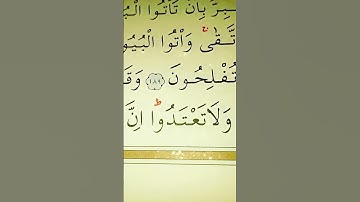 بِرُّ بِاَنْ تَأْتُوا الْبُ
تَّقٰىۚ وَأْتُوا الْبُيُو
تُفْلِحُونَ ﴿١٨٩﴾ وَقَ
وَلَا تَعْتَدُواۜ اِنَّ